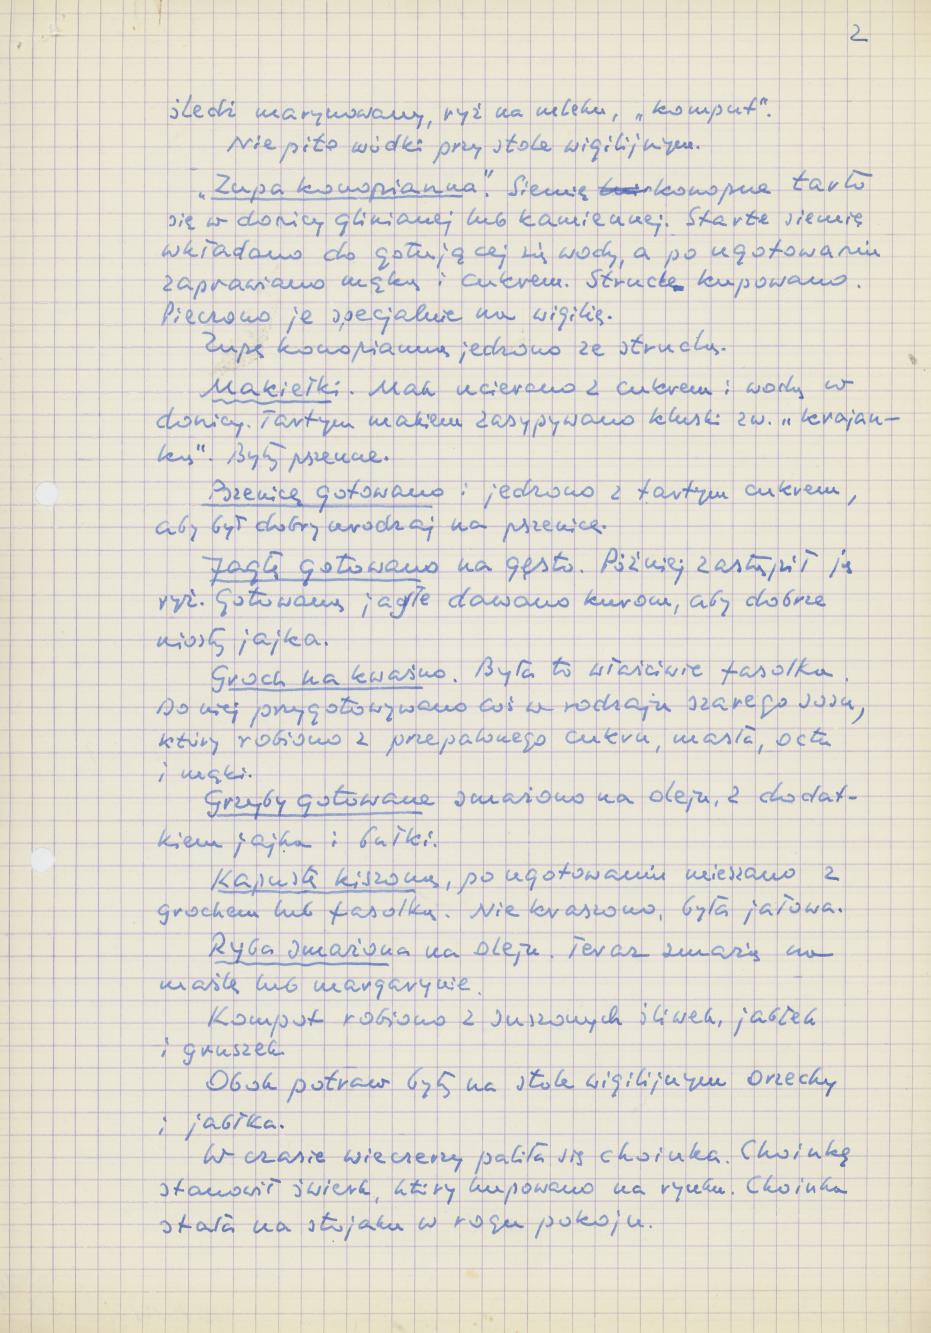 2
śledź marynowany, ryż na mleku, „komput”.
Nie pito wódki przy stole wigilijnym.
„Zupa konopianna”. Siemię konopne tarto
się w donicy glinianej lub kamiennej. Starte siemię
wkładano do gotującej się wody, a po ugotowaniu
zaprawiano mąką i cukrem. Strucle kupowano.
Pieczono je specjalnie na wigilię.
Zupę konopianną jedzono ze struclą.
Makiełki. Mak ucierano z cukrem i wodą w
donicy. Tartym makiem zasypywano kluski zw. „krajan-
ką”. Były pszenne.
Pszenicę gotowano i jedzono z tartym cukrem,
aby był dobry urodzaj na pszenicę.
Jagłę gotowano na gęsto. Później zastąpił ją
ryż. Gotowaną jagłę dawano kurom, aby dobrze
niosły jajka.
Groch na kwaśno. Była to właściwie fasolka.
Do niej przygotowywano coś w rodzaju szarego sosu,
który robiono z przepalonego cukru, masła, octu
i mąki.
Grzyby gotowane smażono na oleju, z dodat-
kiem jajka i bułki.
Kapustę kiszoną, po ugotowaniu mieszano z
grochem lub fasolką. Nie kraszono, była jałowa.
Ryba smażona na oleju. Teraz smażą na
maśle lub margarynie.
Kompot robiono z suszonych śliwek, jabłek
i gruszek
Obok potraw były na stole wigilijnym orzechy
i jabłka.
W czasie wieczerzy paliła się choinka. Choinkę
stanowił świerk, który kupowano na rynku. Choinka
stała na stojaku w rogu pokoju.